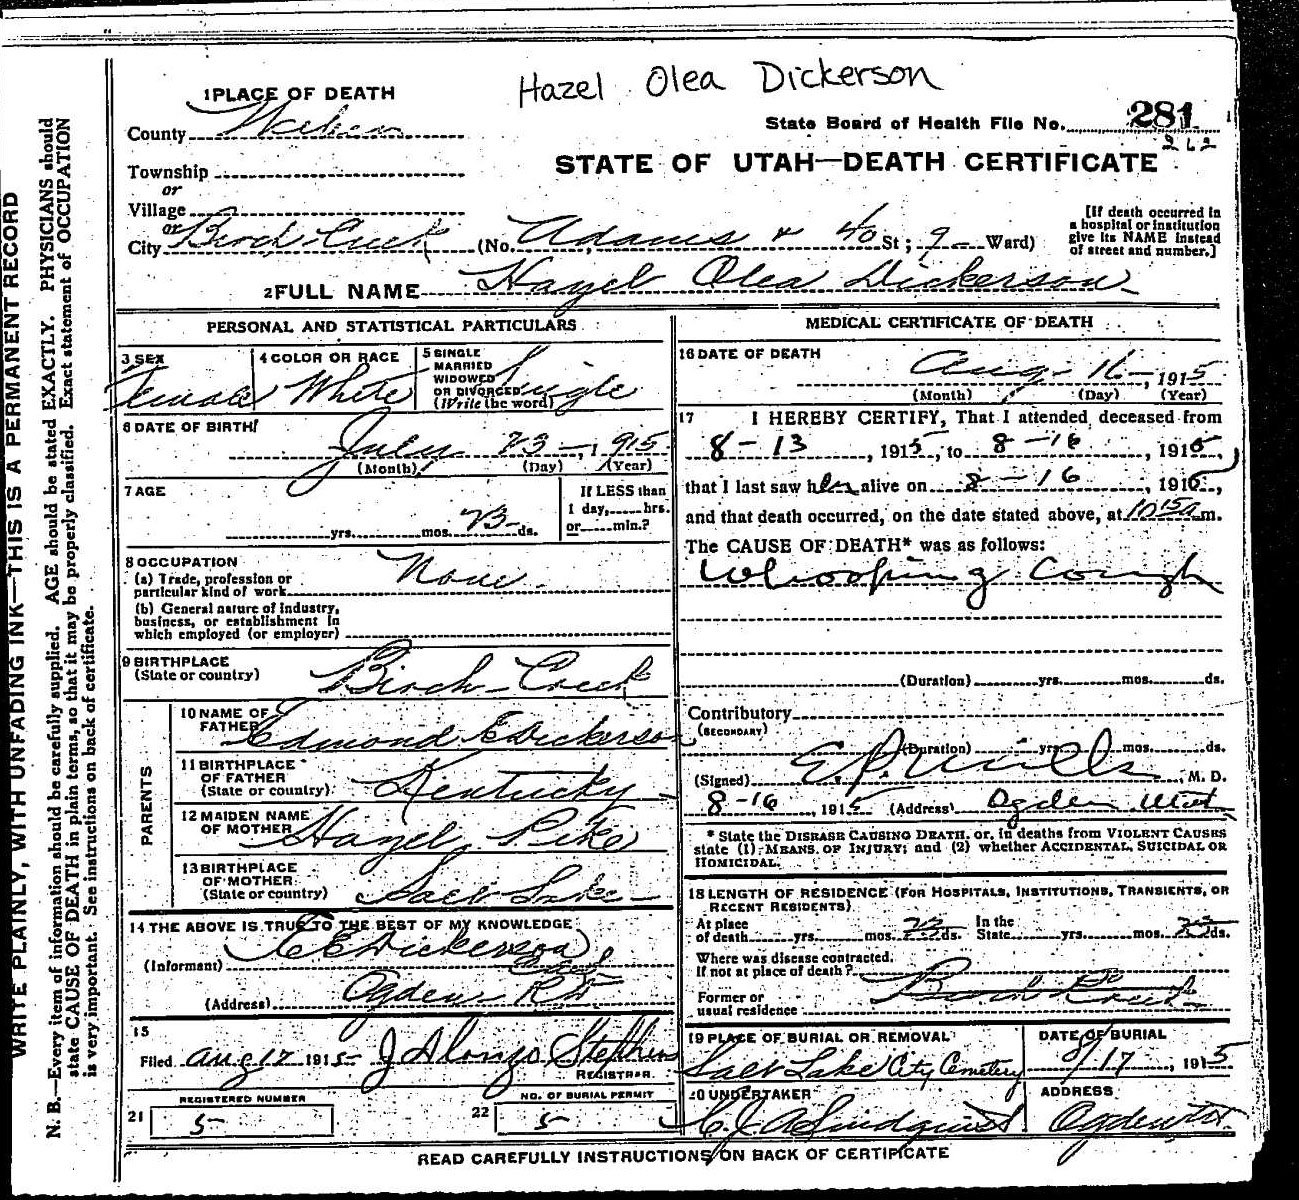 Hazel Olea Dickerson
1 PLACE OF DEATH
County Weber
State Board of Health File No. 281
262
STATE OF UTAH—DEATH CERTIFICATE
Township
or
Village
or
City Birch Creek (No. Adams & 40 St; 9 Ward)
[If death occurred in
a hospital or institution
give its NAME instead
of street and number.]
2 FULL NAME Hazel Olea Dickerson
PERSONAL AND STATISTICAL PARTICULARS
3 SEX
Female
4 COLOR OR RACE
White
5 SINGLE
MARRIED
WIDOWED
OR DIVORCED
(Write the word)
Single
6 DATE OF BIRTH
July 23 -, 1915
(Month) (Day) (Year)
7 AGE
yrs. mos. 23 ds.
If LESS than
1 day, hrs.
or min.?
8 OCCUPATION
None
(a) Trade, profession or
particular kind of work
(b) General nature of industry,
business, or establishment in
which employed (or employer)
9 BIRTHPLACE
(State or country)
Birch Creek
PARENTS
10 NAME OF
FATHER
Edmond E Dickerson
11 BIRTHPLACE
OF FATHER
(State or country)
Kentucky
12 MAIDEN NAME
OF MOTHER
Hazel Pike
13 BIRTHPLACE
OF MOTHER
(State or country)
Salt Lake
14 THE ABOVE IS TRUE TO THE BEST OF MY KNOWLEDGE
(Informant) E E Dickerson
(Address) Ogden
15
Filed Aug 17 1915 J Alonzo Stephens
REGISTRAR.
21
REGISTERED NUMBER
5
22
NO. OF BURIAL PERMIT
5
MEDICAL CERTIFICATE OF DEATH
16 DATE OF DEATH
Aug. 16-, 1915
(Month) (Day) (Year)
17 I HEREBY CERTIFY, That I attended deceased from
8-13, 1915, to 8-16, 1915,
that I last saw her alive on 8-16, 1915,
and that death occurred, on the date stated above, at 10 15a m.
The CAUSE OF DEATH* was as follows:
Whooping Cough
(Duration) yrs. mos. ds.
Contributory
(SECONDARY)
(Duration) yrs. mos. ds.
(Signed) E. P. Mills, M. D.
8-16, 1915 (Address) Ogden Utah
* State the DISEASE CAUSING DEATH, or, in deaths from VIOLENT CAUSES
state (1) MEANS OF INJURY; and (2) whether ACCIDENTAL, SUICIDAL OR
HOMICIDAL.
18 LENGTH OF RESIDENCE (FOR HOSPITALS, INSTITUTIONS, TRANSIENTS, OR
RECENT RESIDENTS)
At place
of death yrs. mos. 23 ds.
In the
State yrs. mos. 23 ds.
Where was disease contracted.
If not at place of death?
Former or
usual residence
Birch Creek
19 PLACE OF BURIAL OR REMOVAL
Salt Lake City Cemetery
DATE OF BURIAL
8/17, 1915
20 UNDERTAKER
C. J. A. Lindquist
ADDRESS
Ogden Ut.
READ CAREFULLY INSTRUCTIONS ON BACK OF CERTIFICATE
WRITE PLAINLY, WITH UNFADING INK—THIS IS A PERMANENT RECORD
N. B.—Every item of information should be carefully supplied. AGE should be stated EXACTLY. PHYSICIANS should
state CAUSE OF DEATH in plain terms, so that it may be properly classified. Exact statement of OCCUPATION
is very important. See instructions on back of certificate.